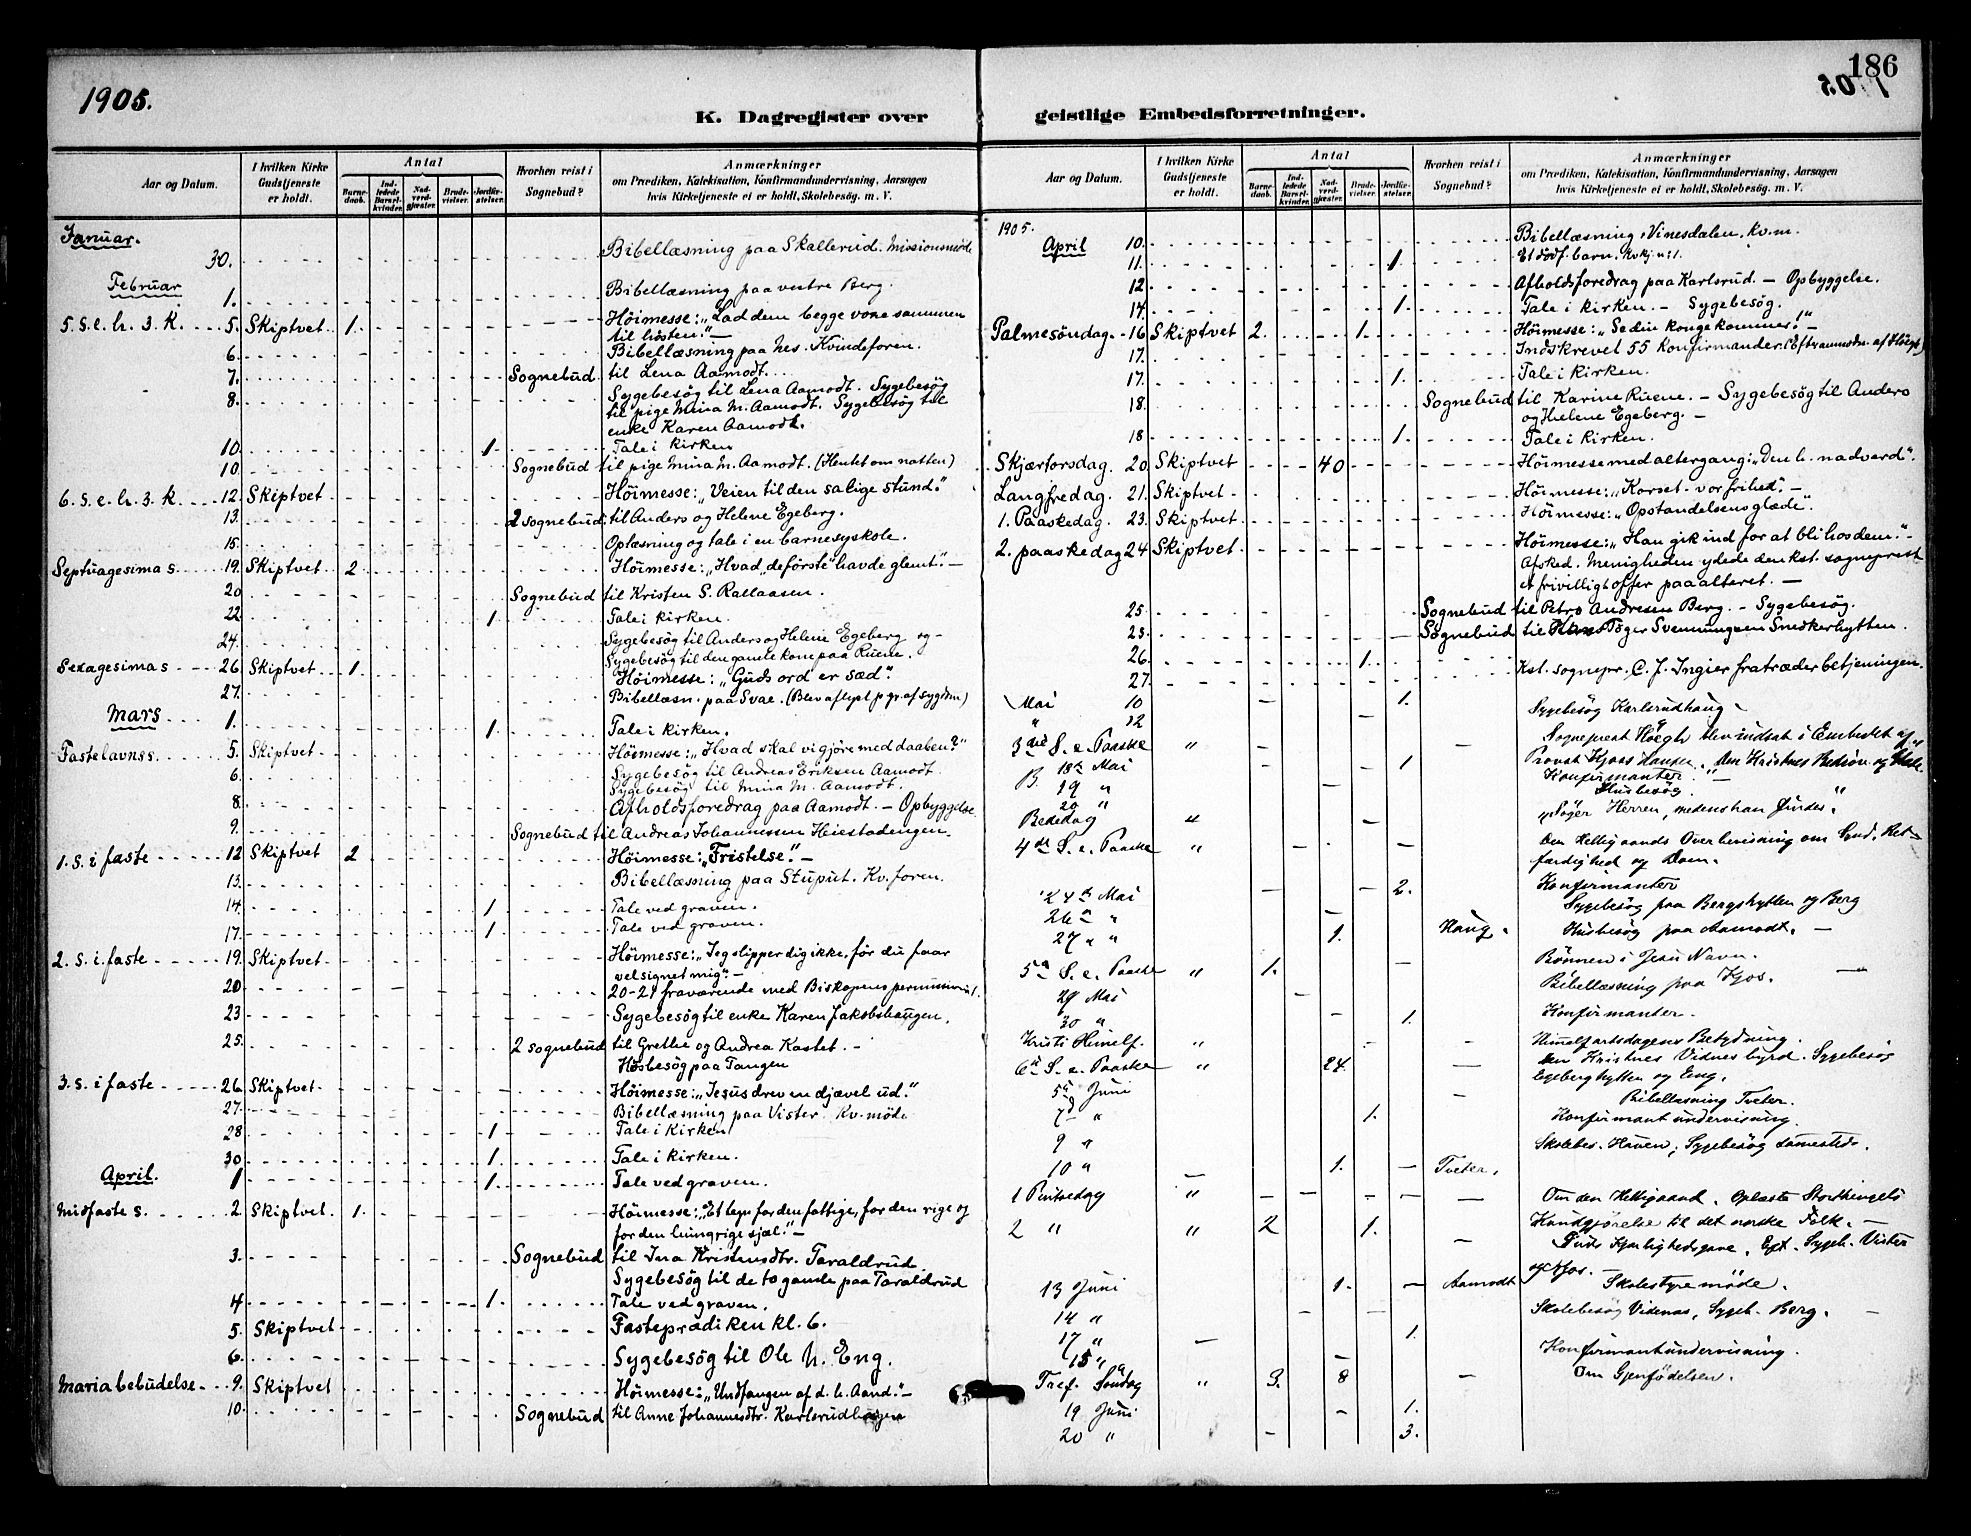 1905.
186
K. Dagregister over
geistlige Embedsforretninger.
Aar og Datum.
I hvilken Kirke Gudstjeneste er holdt.
Antal
Barnedaab.
Indledede Barselkvinder.
Nadverdgjæster.
Brudevielser.
Jordfæstelser.
Hvorhen reist i Sognebud?
Anmærkninger
om Prædiken, Katekisation, Konfirmandundervisning, Aarsagen
hvis Kirketjeneste ei er holdt, Skolebesøg. m. V.
Januar.
30. Bibellæsning paa Skallerud. Missionsmøde
Februar
1. Bibellæsning paa vestre Berg.
5. s. e. h. 3. k. 5. Skiptvet 1. Höimesse: „Lad dem begge voxe sammen
til hösten." —
6. Bibellæsning paa Nes. Kvindeforen.
7. Sognebud til Lena Aamodt.
8. Sygebesög til Lena Aamodt. Sygebesög
til pige Mina M. Aamodt. Sygebesög til
enke Karen Aamodt.
10. 1 Tale i kirken
10. Sognebud til pige Mina M. Aamodt. (Hentet om natten)
6. s. e. h. 3. k. 12. Skiptvet Höimesse: „Veien til den salige stund."
13. 2 sognebud. til Anders og Helene Egeberg.
15. Oplæsning og tale i en barnesyskole.
Septuagesima s. 19. Skiptvet 2. Höimesse: „Hvad „de förste" havde glemt." —
20 Sognebud til Kristen S. Rallaasen.
22. 1 Tale i kirken.
24. Sygebesög til Anders og Helene Egeberg og -
Sygebesög til den gamle kone paa Ruene.
Sexagesima s 26 Skiptvet 1. Höimesse: „Guds ord er sæd."
27. Bibellæsn. paa Svae. (Blev aflyst p. gr. af sygdm)
Mars 1. 1 Tale i kirken.
Fastelavns s. 5. Skiptvet Höimesse: „Hvad skal vi gjöre med daaben?"
6. Sygebesög til Andreas Eriksen Aamodt.
Sygebesög til Mina M. Aamodt.
8. Afholdsforedrag paa Aamodt. — Opbyggelse
9. Sognebud til Andreas Johannessen Heiestadengen.
1. s. i faste 12 Skiptvet 2 Höimesse: „Fristelse." —
13. Bibellæsning paa Stuput. Kv. foren.
14. 1 Tale ved graven.
17. 1. Tale ved graven.
2. s. i. faste 19. Skiptvet Höimesse: „Jeg slipper dig ikke, för du faar
velsignet mig". —
20 20-21 fraværende med Biskopens permission.
23 Sygebesög til enke Karen Jakobshaugen.
25. 2 sognebud til Grethe og Andrea Kastet. —
Husbesög paa Tangen
3. s. i faste 26. Skiptvet Höimesse: „Jesus drev en djævel ud."
27. Bibellæsning paa Vister. Kv. möde
28 1 Tale i Kirken
30 1. Tale i kirken.
April. 1 1. Tale ved graven.
Midfaste s. 2. Skiptvet. 1. Höimesse: „Et legn for den fattige, for den rige og
for den hungrige sjæl." —
3. Sognebud til Ina Kristensdtr. Taraldrud.
Sygebesög til de to gamle paa Taraldrud
4 1. Tale ved graven.
5. Skiptvet Fasteprædiken kl. 6.
6. Sygebesög til Ole N. Eng.
Maria bebudelse 9. Skiptvet Höimesse: „Undfangen af d. h. Aand." —
10. Sognebud til Anne Johannesdtr. Karlsrudhagen
1905.
April 10. Bibellæsning, Vinesdalen. Kv. m.
11. 1. Et dödf. barn.
12 Afholdsforedrag paa Karlsrud. — Opbyggelse.
14. 1. Tale i kirken. — Sygebesög.
Palmesöndag. 16 Skiptvet 2. 1. Höimesse: „Se din konge kommer!" —
17. Indskrevet 55 Konfirmander.
17. 1. Tale i kirken.
18. Sognebud til Karine Ruene. — Sygebesög til Anders
og Helene Egeberg. —
18 1. Tale i kirken.
Skjærtorsdag. 20 Skiptvet 40 Höimesse med altergang: „Den h. nadverd".
Langfredag. 21. Skiptvet Höimesse: „Korset - vor frihed". —
1. Paaskedag. 23. Skiptvet Höimesse: „Opstandelsens glæde".
2. paaskedag 24 Skiptvet Höimesse: „Han gik ind for at bli hos dem." —
Afsked. Menigheden ydede den kst. sogneprest
et frivilligt offer paa alteret. —
25. Sognebud til Petro Andresen Berg. — Sygebesög.
25. Sognebud til Töger Svenningsen Snedkerhytten.
26. 1. Kst. sognepr. C. J. Ingier fratræder betjeningen.
27.
Mai 10 1. Sygebesög Karlsrudhaug
" 12 Sogneprest Höegh blev indsat i Embedet af
3die S. e. Paaske " Provst Kjoss Hansen. Den Kristnes
B. 18de Mai 1 Konfirmanter "
19 " Husbesög. "
20 "
Bededag " „Söger Herren, medens han findes."
4de S. e. Paaske " Den Helligaands Overbevisning om Synd, Ret-
færdighed og Dom.
24de Mai 2. Konfirmanter
26 " Sygebesög paa Bergshytten og Berg
27 " " 1. Haug. Husbesög paa Aamodt. —
5te S. e. Paaske " 1. Bönnen i Jesu Navn.
29 Mai Bibellæsning paa Kjos.
30 " 1. Konfirmanter.
Kristi Himelf. " Himelfartsdagens Betydning.
6te S. e. Paaske " 24. Den Kristnes Vidnesbyrd. Sygebesög
Egeberghytten og Eng.
5te Juni Bibellæsning Tveter.
7de " 1. Konfirmantundervisning.
9 " Skolebes. Haven, Sygebesög sammesteds.
10 " 1. Tveter.
1 Pintsedag " Om den Helligaand. Oplæste Storthingets
2 " " 2 1. Kundgjörelse til det norske Folk. —
Guds Kjærlighedsgave. Sygeb. Vister
og Kjos. —
13 Juni 1. Aamodt Skolestyremöde.
14 " Skolebesög Vidnes, Sygeb. Berg.
17 " 1.
15 " Konfirmantundervisning.
Tref. Söndag " 3. 8 Om Gjenfödelsen.
19 Juni 1.
20 " 3.